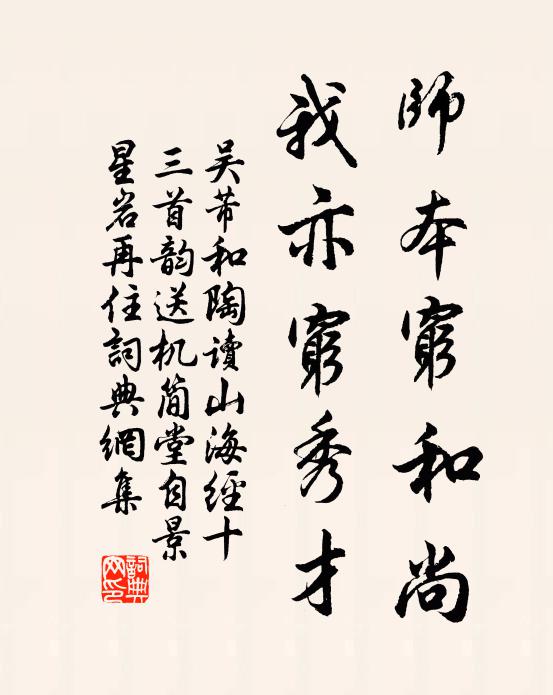 師本窮和尚
我亦窮秀才
吴芾和陶讀山海經十
三首韵送机簡堂自景
星岩再住詞典網集
詞典网印